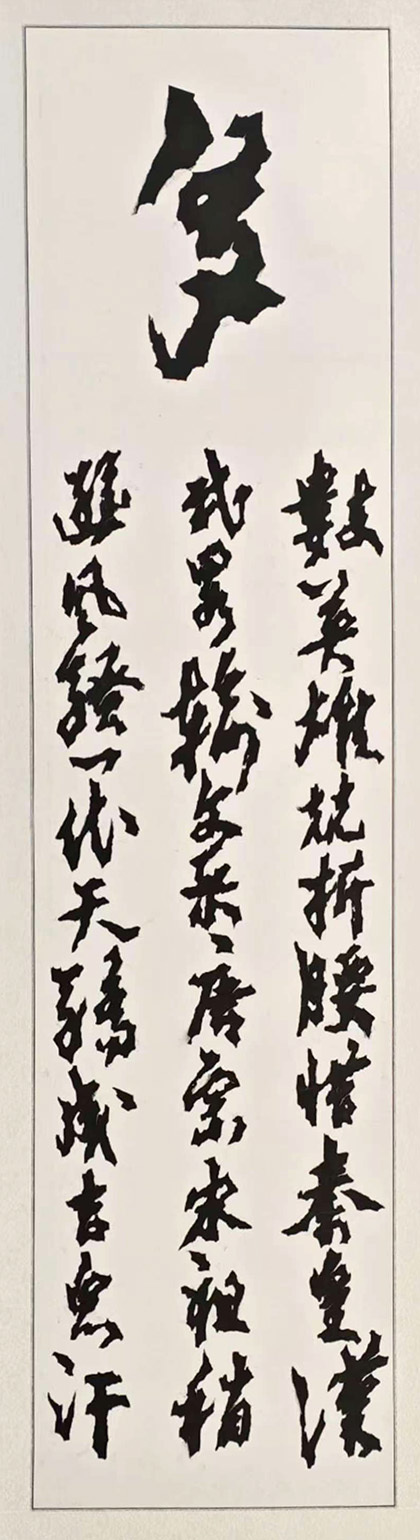 多
數英雄竞折腰惜秦皇漢
武畧輸文采唐宗宋祖稍
遜風騷一代天驕成吉思汗